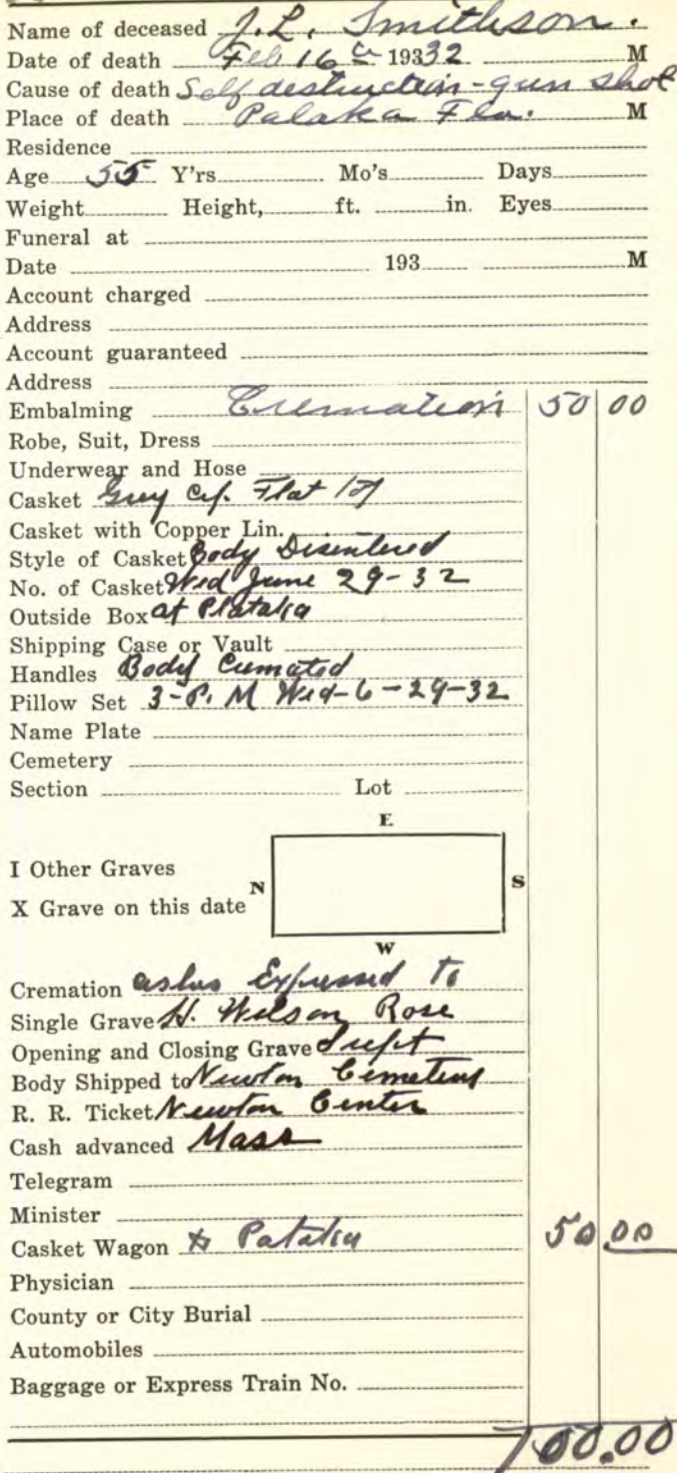 Name of deceased J. L. Smithson.
Date of death Feb 16th 1932 M
Cause of death Self destruction - gun shot
Place of death Palaka Fla. M
Residence
Age 55 Y'rs Mo's Days
Weight Height, ft. in. Eyes
Funeral at
Date 193 M
Account charged
Address
Account guaranteed
Address
Embalming Cremation 50 00
Robe, Suit, Dress
Underwear and Hose
Casket Grey Flat
Casket with Copper Lin.
Style of Casket Body Disentered
No. of Casket Wed June 29-32
Outside Box at Platalka
Shipping Case or Vault
Handles Body Cremated
Pillow Set 3-P.M Wed-6-29-32
Name Plate
Cemetery
Section Lot
E
I Other Graves
N S
X Grave on this date
W
Cremation ashes Expressed To
Single Grave H. Wilson Rose
Opening and Closing Grave Supt
Body Shipped to Newton Cemetery
R. R. Ticket Newton Center
Cash advanced Mass
Telegram
Minister
Casket Wagon to Patalka 50 00
Physician
County or City Burial
Automobiles
Baggage or Express Train No.
100.00